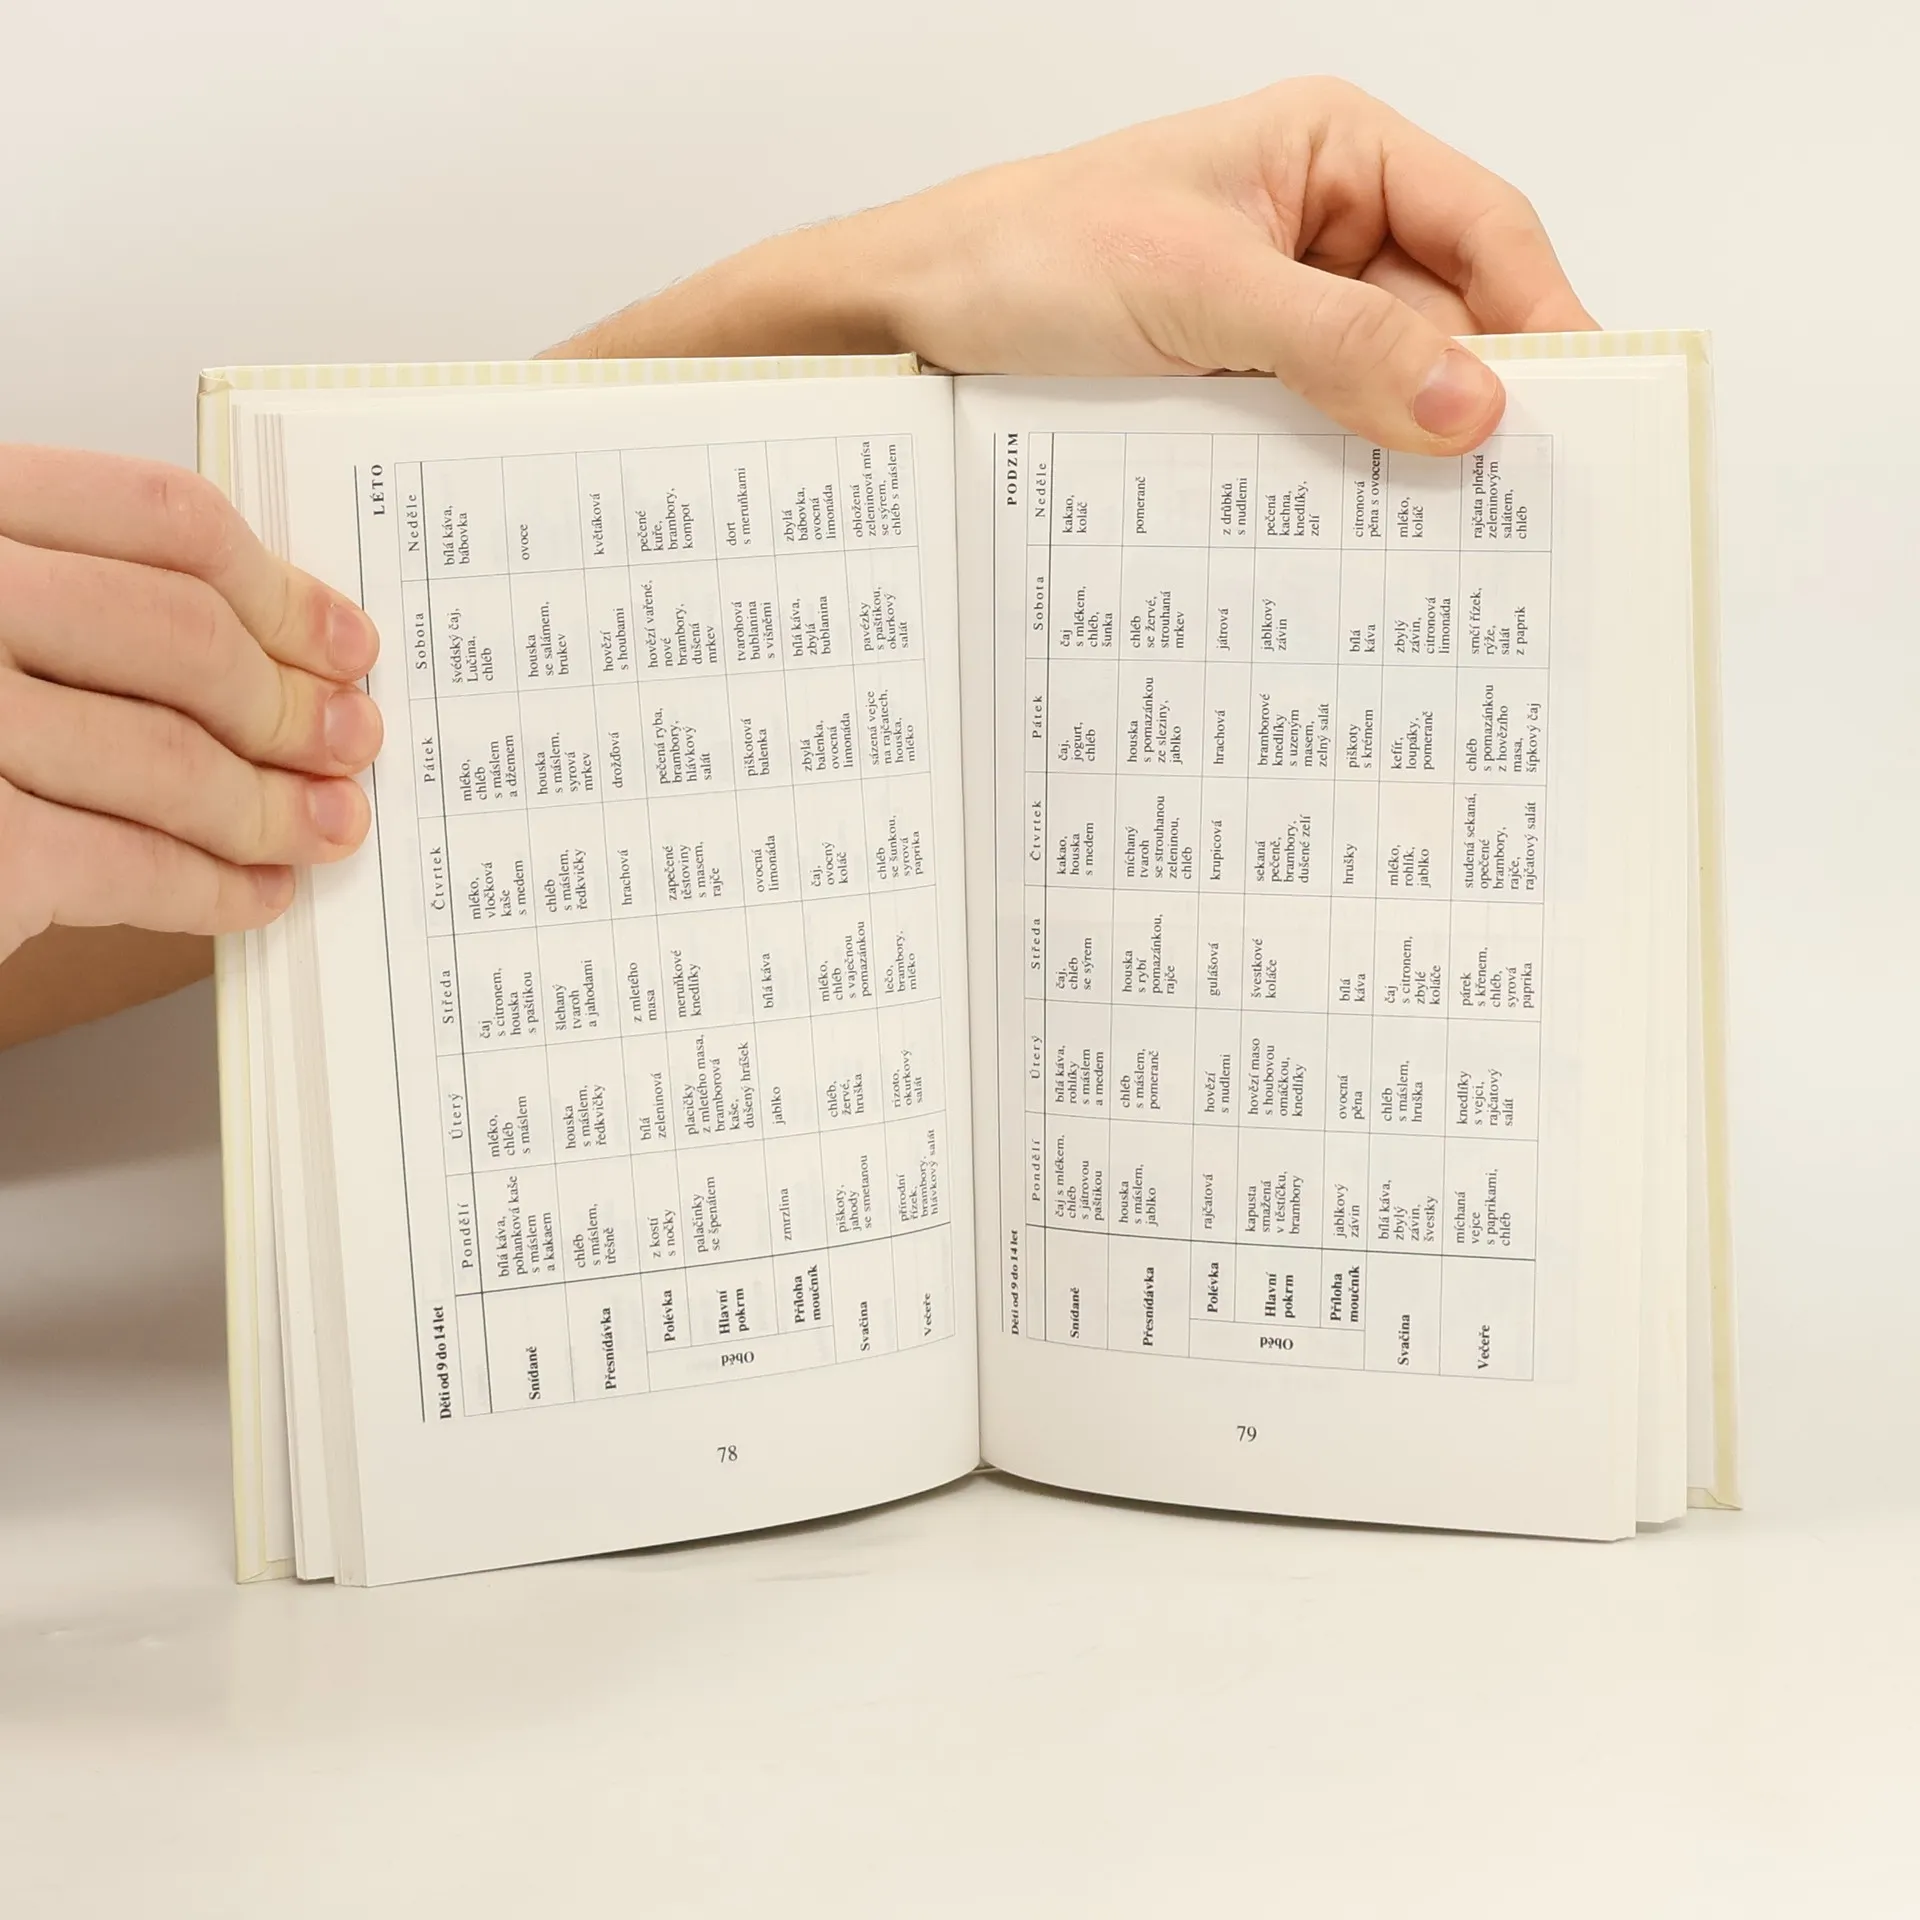 LÉTO
Děti od 9 do 14 let
Pondělí
Úterý
Středa
Čtvrtek
Pátek
Sobota
Neděle
Snídaně
bílá káva,
pohanková kaše
s máslem
a kakaem
mléko,
chléb
s máslem
čaj
s citronem,
houska
s paštikou
mléko,
vločková
kaše
s medem
mléko,
chléb
s máslem
a džemem
švédský čaj,
Lučina,
chléb
bílá káva,
bábovka
Přesnídávka
chléb
s máslem,
třešně
houska
s máslem,
ředkvičky
šlehaný
tvaroh
a jahodami
chléb
s máslem,
ředkvičky
houska
s máslem,
syrová
mrkev
houska
se salámem,
brukev
ovoce
Oběd
Polévka
z kostí
s nočky
bílá
zeleninová
z mletého
masa
hrachová
drožďová
hovězí
s houbami
květáková
Hlavní
pokrm
palačinky
se špenátem
placičky
z mletého masa,
bramborová
kaše,
dušený hrášek
meruňkové
knedlíky
zapečené
těstoviny
s masem,
rajče
pečená ryba,
brambory,
hlávkový
salát
hovězí vařené,
nové
brambory,
dušená
mrkev
pečené
kuře,
brambory,
kompot
Příloha
moučník
zmrzlina
jablko
bílá káva
ovocná
limonáda
piškotová
balenka
tvarohová
bublanina
s višněmi
dort
s meruňkami
Svačina
piškoty,
jahody
se smetanou
chléb,
žervé,
hruška
mléko,
chléb
s vaječnou
pomazánkou
čaj,
ovocný
koláč
zbylá
balenka,
ovocná
limonáda
bílá káva,
zbylá
bublanina
zbylá
bábovka,
ovocná
limonáda
Večeře
přírodní
řízek,
brambory,
hlávkový salát
rizoto,
okurkový
salát
lečo,
brambory,
mléko
chléb
se šunkou,
syrová
paprika
sázená vejce
na rajčatech,
houska,
mléko
pavézky
s paštikou,
okurkový
salát
obložená
zeleninová mísa
se sýrem,
chléb s máslem
78
PODZIM
Děti od 9 do 14 let
Pondělí
Úterý
Středa
Čtvrtek
Pátek
Sobota
Neděle
Snídaně
čaj s mlékem,
chléb
s játrovou
paštikou
bílá káva,
rohlíky
s máslem
a medem
čaj,
chléb
se sýrem
kakao,
houska
s medem
čaj,
jogurt,
chléb
čaj
s mlékem,
chléb,
šunka
kakao,
koláč
Přesnídávka
houska
s máslem,
jablko
chléb
s máslem,
pomeranč
houska
s rybí
pomazánkou,
rajče
míchaný
tvaroh
se strouhanou
zeleninou,
chléb
houska
s pomazánkou
ze sleziny,
jablko
chléb
se žervé,
strouhaná
mrkev
pomeranč
Oběd
Polévka
rajčatová
hovězí
s nudlemi
gulášová
krupicová
hrachová
játrová
z drůbků
s nudlemi
Hlavní
pokrm
kapusta
smažená
v těstíčku,
brambory
hovězí maso
s houbovou
omáčkou,
knedlíky
švestkové
koláče
sekaná
pečeně,
brambory,
dušené zelí
bramborové
knedlíky
s uzeným
masem,
zelný salát
jablkový
závin
pečená
kachna,
knedlíky,
zelí
Příloha
moučník
jablkový
závin
ovocná
pěna
bílá
káva
hrušky
piškoty
s krémem
bílá
káva
citronová
pěna s ovocem
Svačina
bílá káva,
zbylý
závin,
švestky
chléb
s máslem,
hruška
čaj
s citronem,
zbylé
koláče
mléko,
rohlík,
jablko
kefír,
loupáky,
pomeranč
zbylý
závin,
citronová
limonáda
mléko,
koláč
Večeře
míchaná
vejce
s paprikami,
chléb
knedlíky
s vejci,
rajčatový
salát
párek
s křenem,
chléb,
syrová
paprika
studená sekaná,
opečené
brambory,
rajče,
rajčatový salát
chléb
s pomazánkou
z hovězího
masa,
šípkový čaj
srnčí řízek,
rýže,
salát
z paprik
rajčata plněná
zeleninovým
salátem,
chléb
79